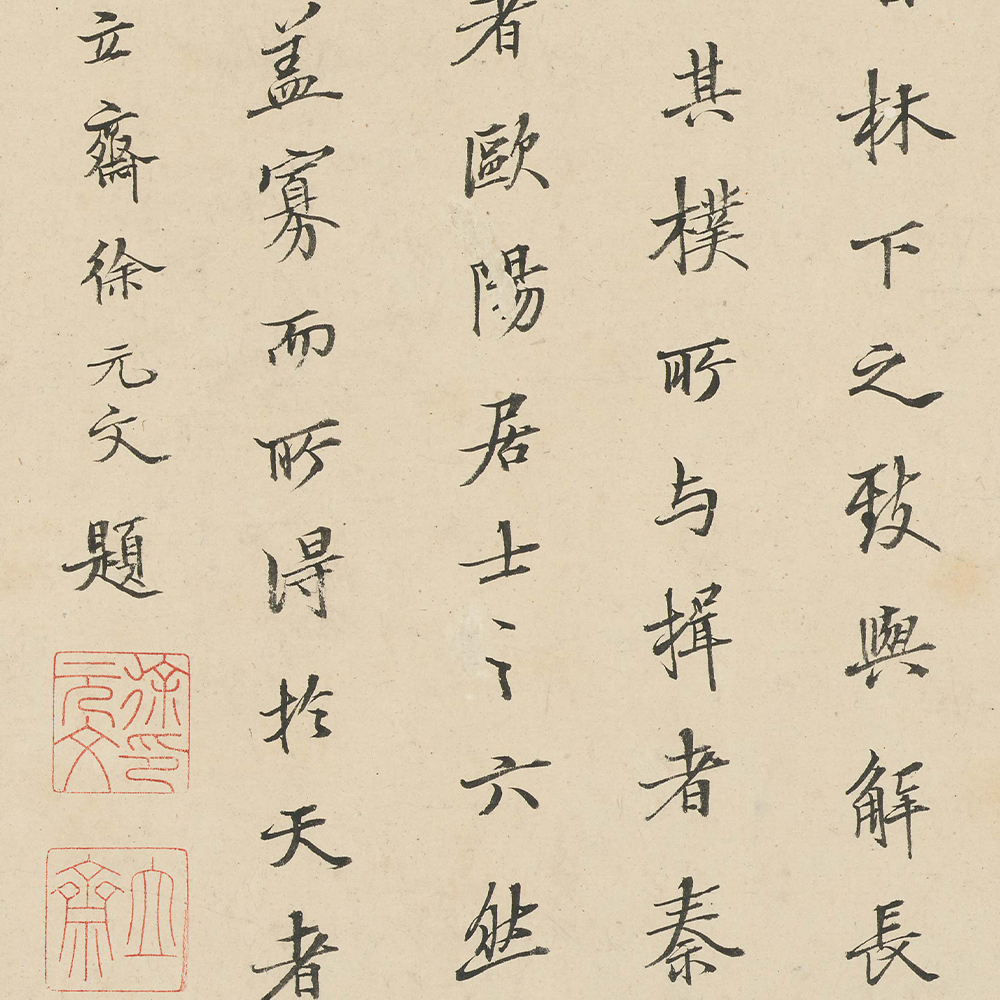 林下之致與解長
其樸所与揖者秦
者歐陽居士之六然
蓋寡而所得於天者
立齋徐元文題
徐元文印
立齋